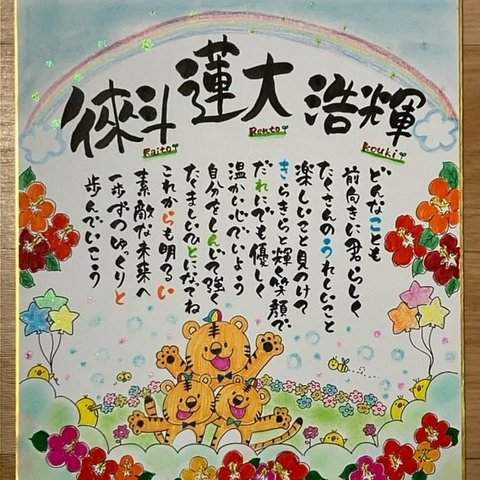 徠斗 蓮大 浩輝
Raito Rento Kouki
どんなことも
前向きに君らしく
たくさんのうれしいこと
楽しいこと見つけて
きらきらと輝く笑顔で
だれにでも優しく
温かい心でいよう
自分をしんじて強く
たくましいひとになってね
これからも明るい
素敵な未来へ
一歩ずつゆっくりと
歩んでいこう